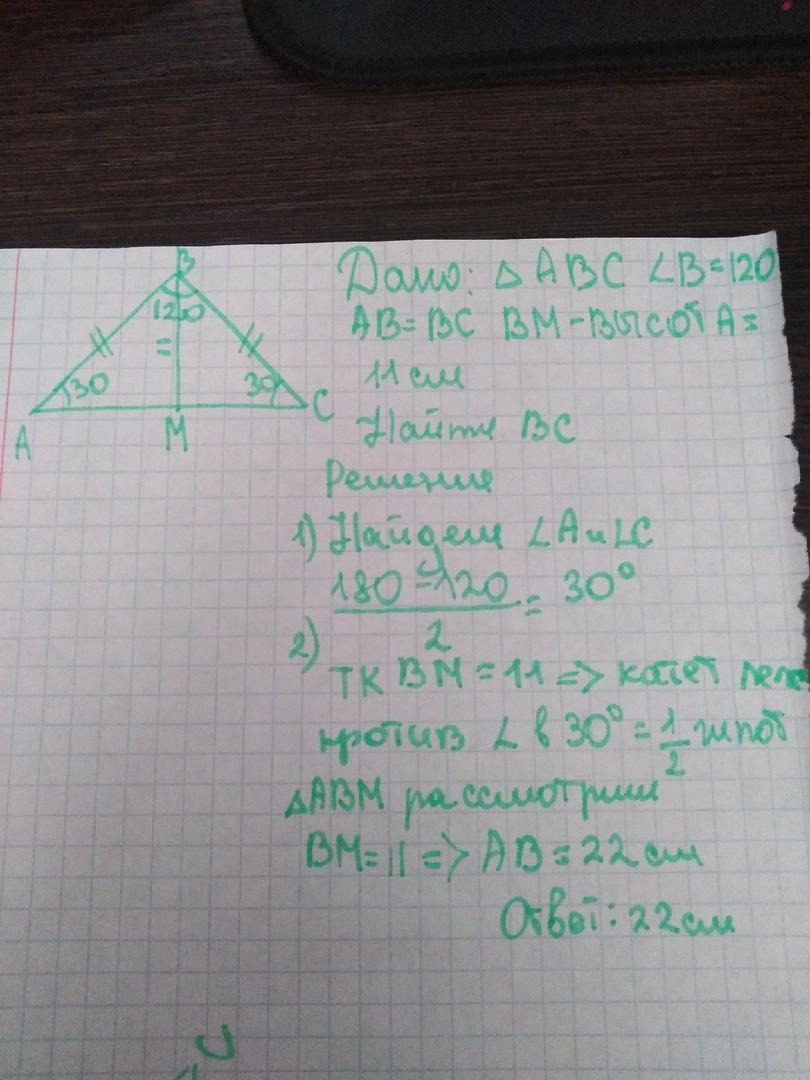 B
120
30
30
A
M
C
Дано: △ ABC ∠B=120
AB=BC BM-высота=
11 см
Найти BC
Решение
1) Найдем ∠A и ∠C
180-120
2
= 30°
2)
ТК BM = 11 => катет леж
против ∠ в 30° = 1/2 гипот
△ABM рассмотрим
BM=11 => AB = 22 см
Ответ: 22 см